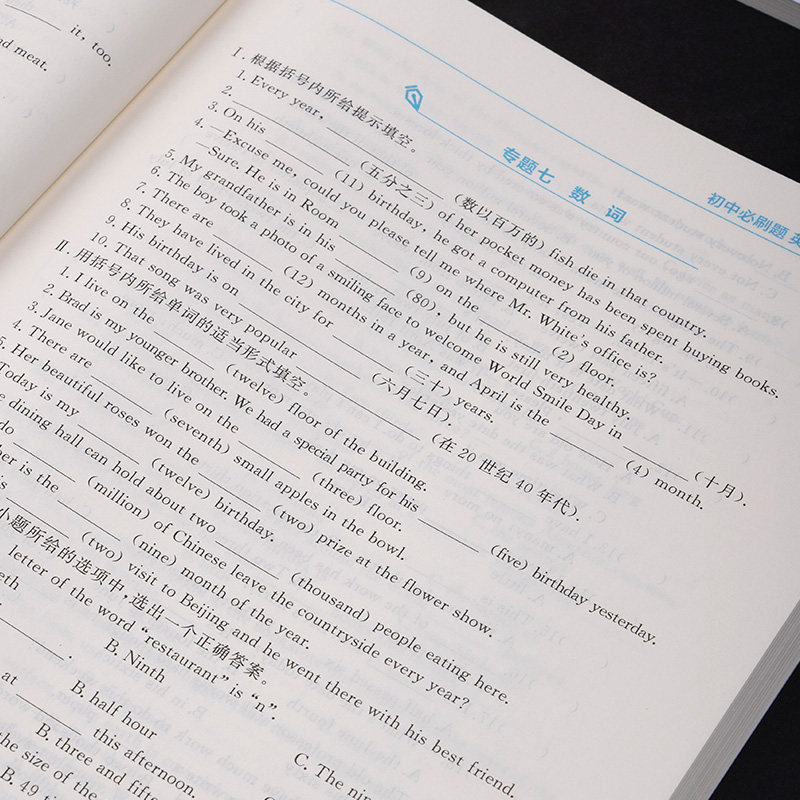 it, too.
nd meat.
初中必刷题 英
专题七 数 词
Ⅰ. 根据括号内所给提示填空。
1. Every year, ________ (数以百万的) fish die in that country.
2. ________ (五分之三) of her pocket money has been spent buying books.
3. On his ________ (11) birthday, he got a computer from his father.
4. —Excuse me, could you please tell me where Mr. White's office is?
—Sure. He is in Room ________ (9) on the ________ (2) floor.
5. My grandfather is in his ________ (80), but he is still very healthy.
6. The boy took a photo of a smiling face to welcome World Smile Day in ________ (十月).
7. There are ________ (12) months in a year, and April is the ________ (4) month.
8. They have lived in the city for ________ (三十) years.
9. His birthday is on ________ (六月七日).
10. That song was very popular ________ (在20世纪40年代).
Ⅱ. 用括号内所给单词的适当形式填空。
1. I live on the ________ (twelve) floor of the building.
2. Brad is my younger brother. We had a special party for his ________ (five) birthday yesterday.
3. Jane would like to live on the ________ (three) floor.
4. There are ________ (seventh) small apples in the bowl.
5. Her beautiful roses won the ________ (two) prize at the flower show.
Today is my ________ (twelve) birthday.
e dining hall can hold about two ________ (thousand) people eating here.
do ________ (million) of Chinese leave the countryside every year?
ber is the ________ (nine) month of the year.
s ________ (two) visit to Beijing and he went there with his best friend.
小题所给的选项中,选出一个正确答案。
letter of the word "restaurant" is "n".
eth B. Ninth C. The nin
________.
B. half hour
at ________ this afternoon.
B. three and fifte
the size of the
B. 49 ti